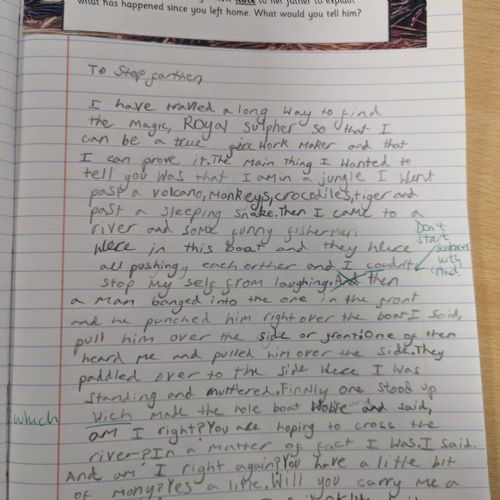 what has happened since you left home. What would you tell him?
To Stepfarther,
I have travled a long way to find
the magic, Royal sulpher so that I
can be a true fire work maker and that
I can prove it. The main thing I wanted to
tell you was that I am in a jungle I went
past a volcano, monkeys, crocodiles, tiger and
past a sleeping snake. Then I came to a
river and some funny fishermen
Were in this boat and they Were
all pushing, each orther and I couldn't
stop my self from laughing. And then
Don't
start
sentences
with
'And'
a man banged into the one in the front
and he punched him right over the boat I said,
pull him over the side or front: One of them
heard me and pulled him over the side. They
paddled over to the side Were I was
standing and muttered. Finnly one stood up
Wich made the hole boat and said,
which
am I right? You are hoping to cross the
river? In a matter of fact I was. I said.
And am I right again? You have a little bit
of mony? Yes a litle. Will you carry me a